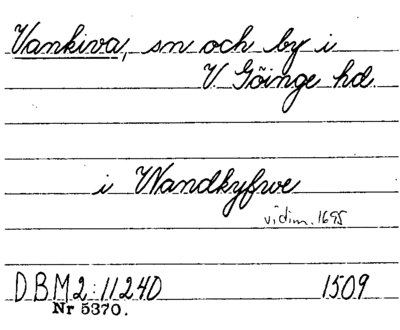 Vankiva, sn och by i
V. Göinge hd.
i Wandkyfwe
vidim. 1695
DBM2:11240 1509
Nr 5370.